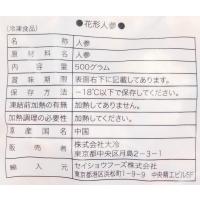 ●花形人参●
(冷凍食品)
名称 人参
原材料名 人参
内容量 500グラム
賞味期限 表面右下に記載してあります。
保存方法 −18℃以下で保存してください。
凍結前加熱の有無 加熱してありません。
加熱調理の必要性 加熱してください。
原産国名 中国
販売者 株式会社大冷
東京都中央区月島2−3−1
輸入元 セイショウフーズ株式会社
東京都港区浜松町1−9− 中央精工ビル5F